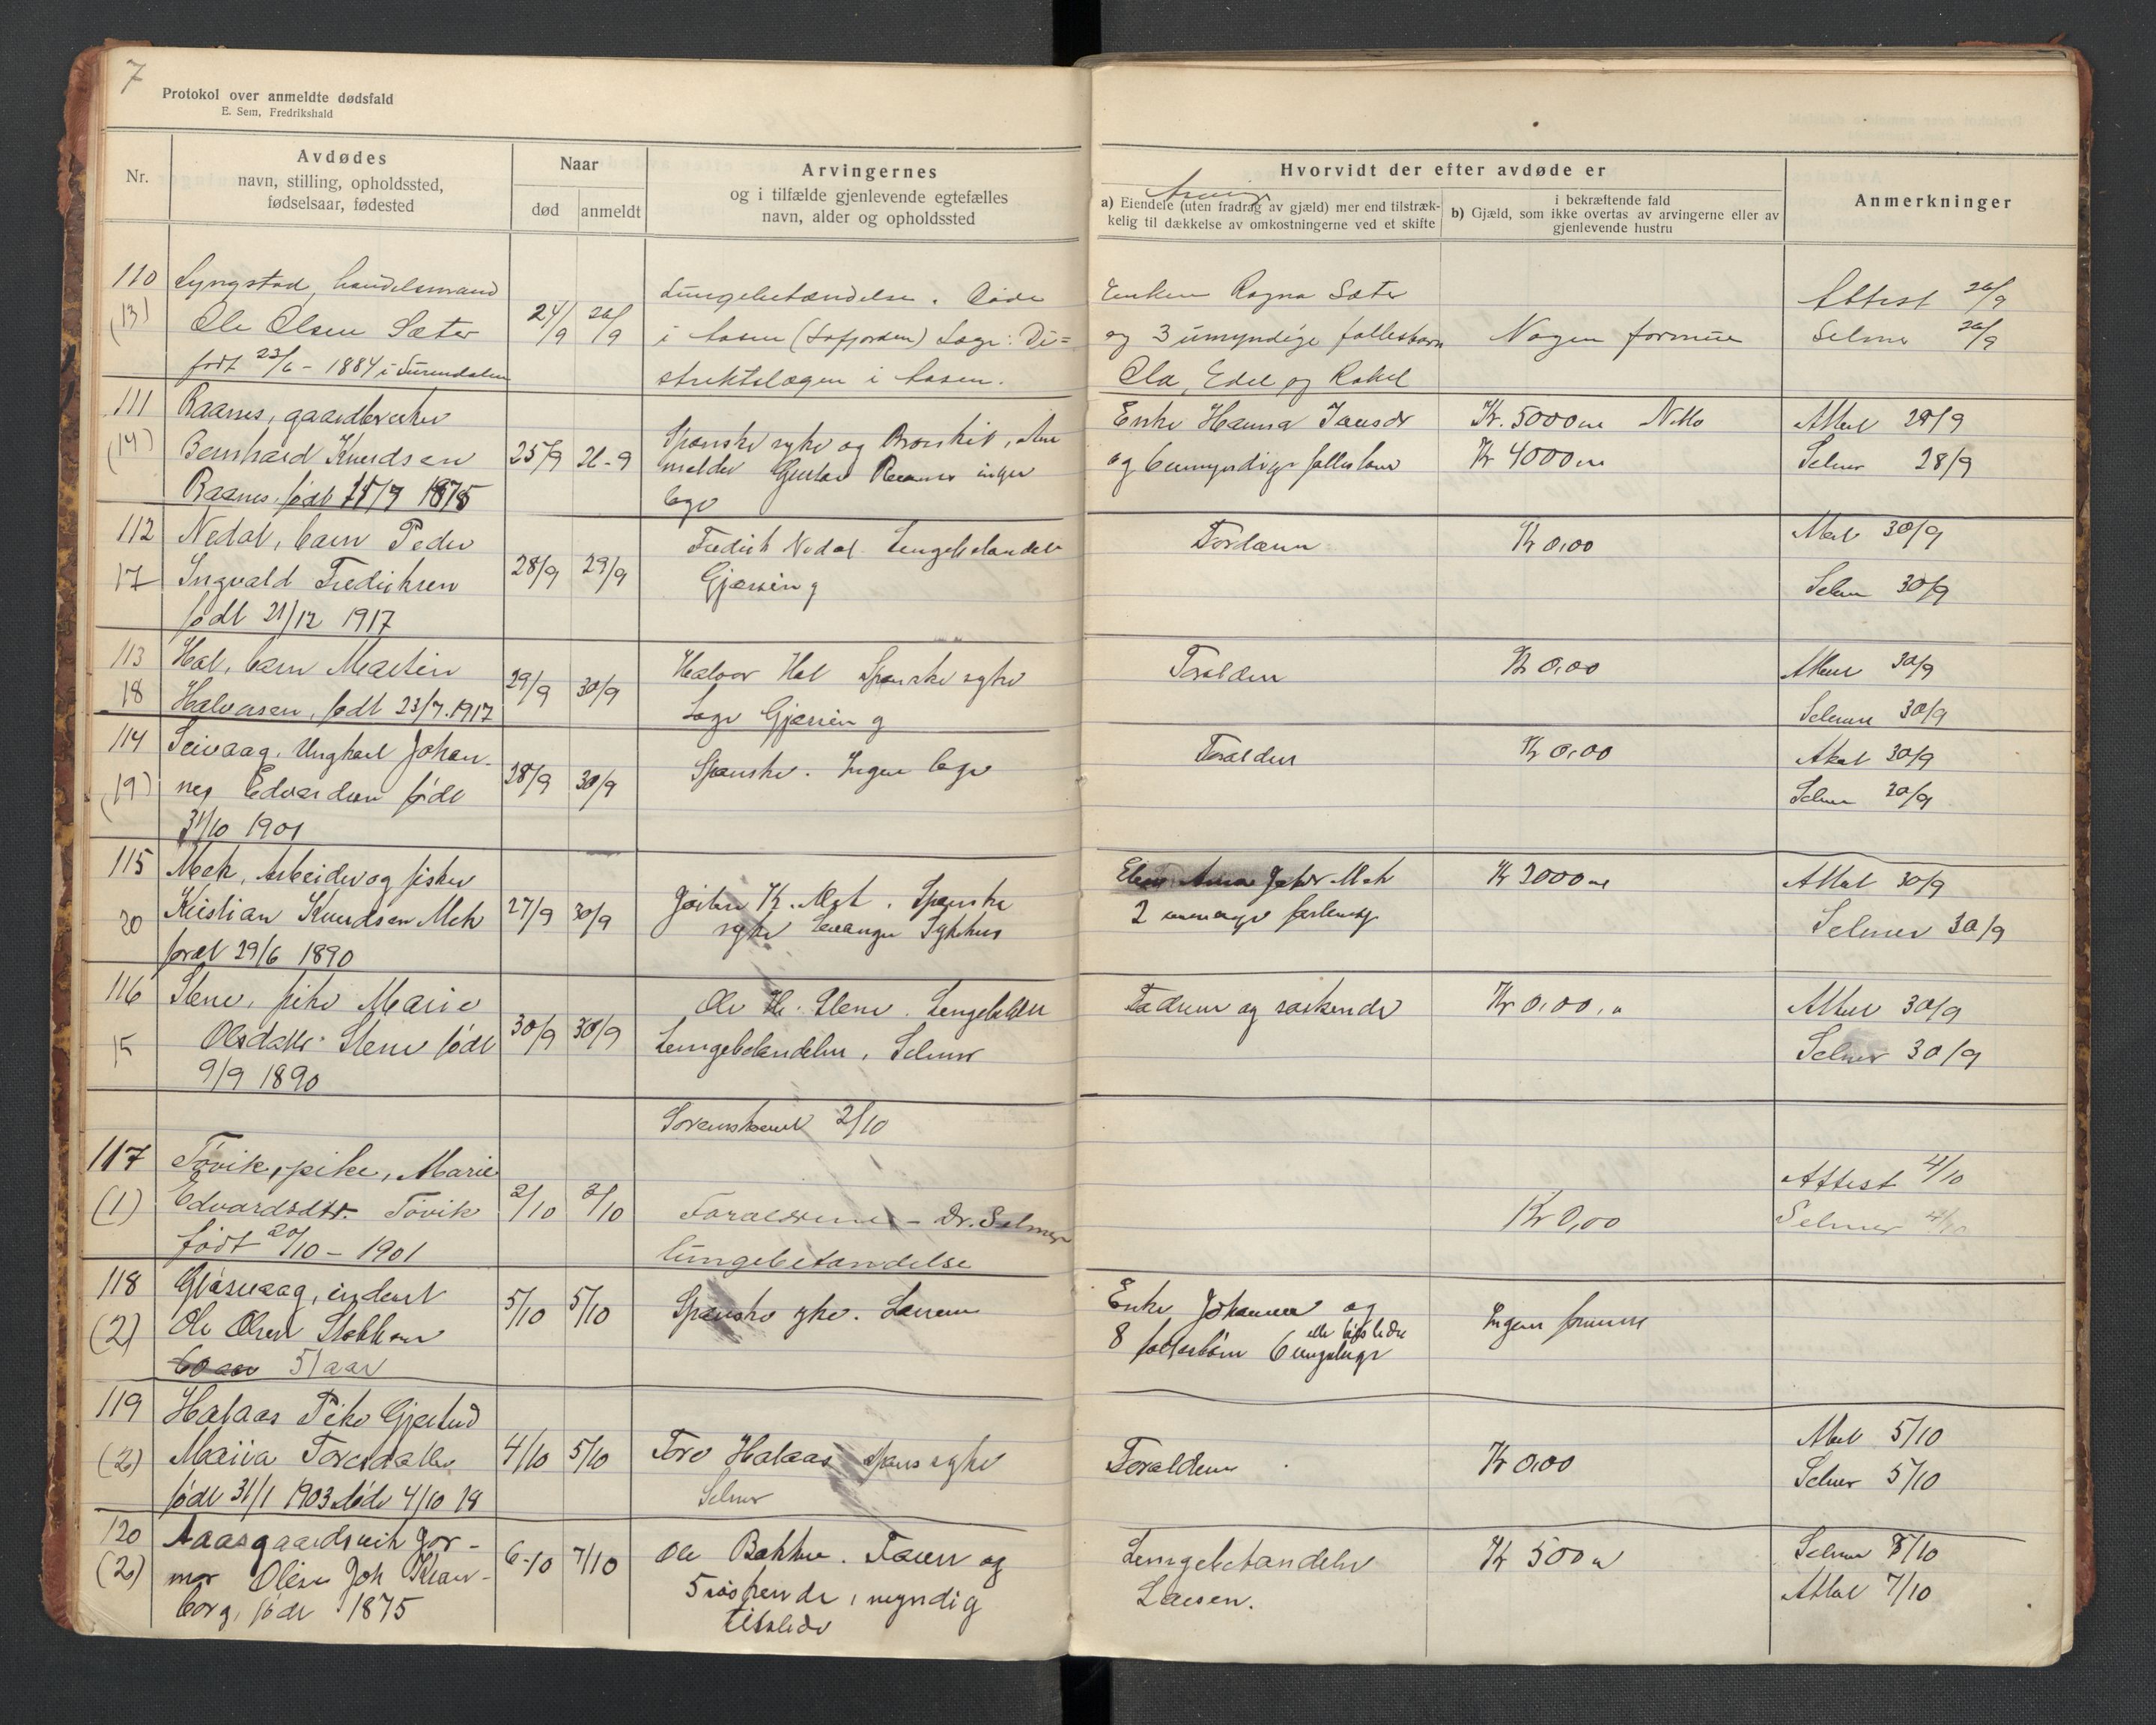 7
Protokol over anmeldte dødsfald
E. Sem, Fredrikshald
Nr.
Avdødes
navn, stilling, opholdssted,
fødselsaar, fødested
Naar
død
anmeldt
Arvingernes
og i tilfælde gjenlevende egtefælles
navn, alder og opholdssted
Hvorvidt der efter avdøde er
a) Eiendele (uten fradrag av gjæld) mer end tilstræk-
kelig til dækkelse av omkostningerne ved et skifte
i bekræftende fald
b) Gjæld, som ikke overtas av arvingerne eller av
gjenlevende hustru
Anmerkninger
110
(13)
Lyngstad, handelsmand
Ole Olsen Sæter
født 23/6 - 1884 i Surendalen
24/9
26/9
Lungebetændelse. Døde
i Aasen (Lofjorden) Læge: Di=
striktslægen i Aasen.
Enken Ragna Sæter
og 3 umyndige fællesbarn
Ola, Edel og Rakel
Nogen formue
Attest 26/9
Selmer 26/9
111
(14)
Raanes, gaardbruker
Bernhard Knudsen
Raanes, født 1875
25/9
26-9
Spanske syke og Bronkit, an
melder Gustav Raanes ingen
læge
Enke Hanna Jansdr
og 6 umyndige fælles barn
Kr. 5000 Netto
Kr 4000
Attest 28/9
Selmer 28/9
112
17
Nedal, barn Peder
Ingvald Fredriksen
født 21/12 1917
28/9
29/9
Fredrik Nedal Lungebetændelse
Gjæssing
Kr 0,00
Attest 30/9
Selmer 30/9
113
18
Hal, barn Martin
Halvorsen, født 23/7.1917
29/9
30/9
Halvor Hal Spanske syke
Læge Gjæssing
Forældrene
Kr 0,00
Attest 30/9
Selmer 30/9
114
(19)
Leivaag, Ungkarl Johan-
nes Edvardsen født
31/10 1901
28/9
30/9
Spanske. Ingen læge
Forældrene
Kr 0,00
Attest 30/9
Selmer 30/9
115
20
Mek, Arbeider og fisker
Kristian Knudsen Mek
født 29/6 1890
27/9
30/9
K. Mek. Spanske
syke Levanger Sykehus
Anna Mek
2
Kr 2000
Attest 30/9
Selmer 30/9
116
15
Stene, pike Marie
Olsdatter Stene født
9/9 1890
30/9
30/9
Ole Stene.
Lungebetændelse, Selmer
Fadren og søskende
Kr 0,00
Attest 30/9
Selmer 30/9
2/10
117
(1)
Tøvik, pike, Marie
Edvardsdtr. Tøvik
født 20/10 - 1901
2/10
3/10
Forældrene - Dr. Selmer
Lungebetændelse
Kr 0,00
Attest 4/10
Selmer 4/10
118
(2)
Glasvaag, inderst
Ole Olsen Stokkan
60 aar 51 aar
5/10
5/10
Spanske syke. Larsen
Enke Johanna og
8 fællesbørn 6
Ingen formue
119
(2)
Halaas Pike Gjertrud
Maria Toresdatter
født 31/1 1903 døde 4/10 18
4/10
5/10
Tore Halaas spansksyke
Selmer
Forældrene
Kr 0,00
Attest 5/10
Selmer 5/10
120
(2)
Aasgaardsvik Jor-
mor Oline Joh Kran-
borg, født 1875
6-10
7/10
Ole Bakken. Faren og
5 søskende, myndig
tilstede
Lungebetændelse
Larsen.
Kr 500
Selmer 8/10
Attest 7/10